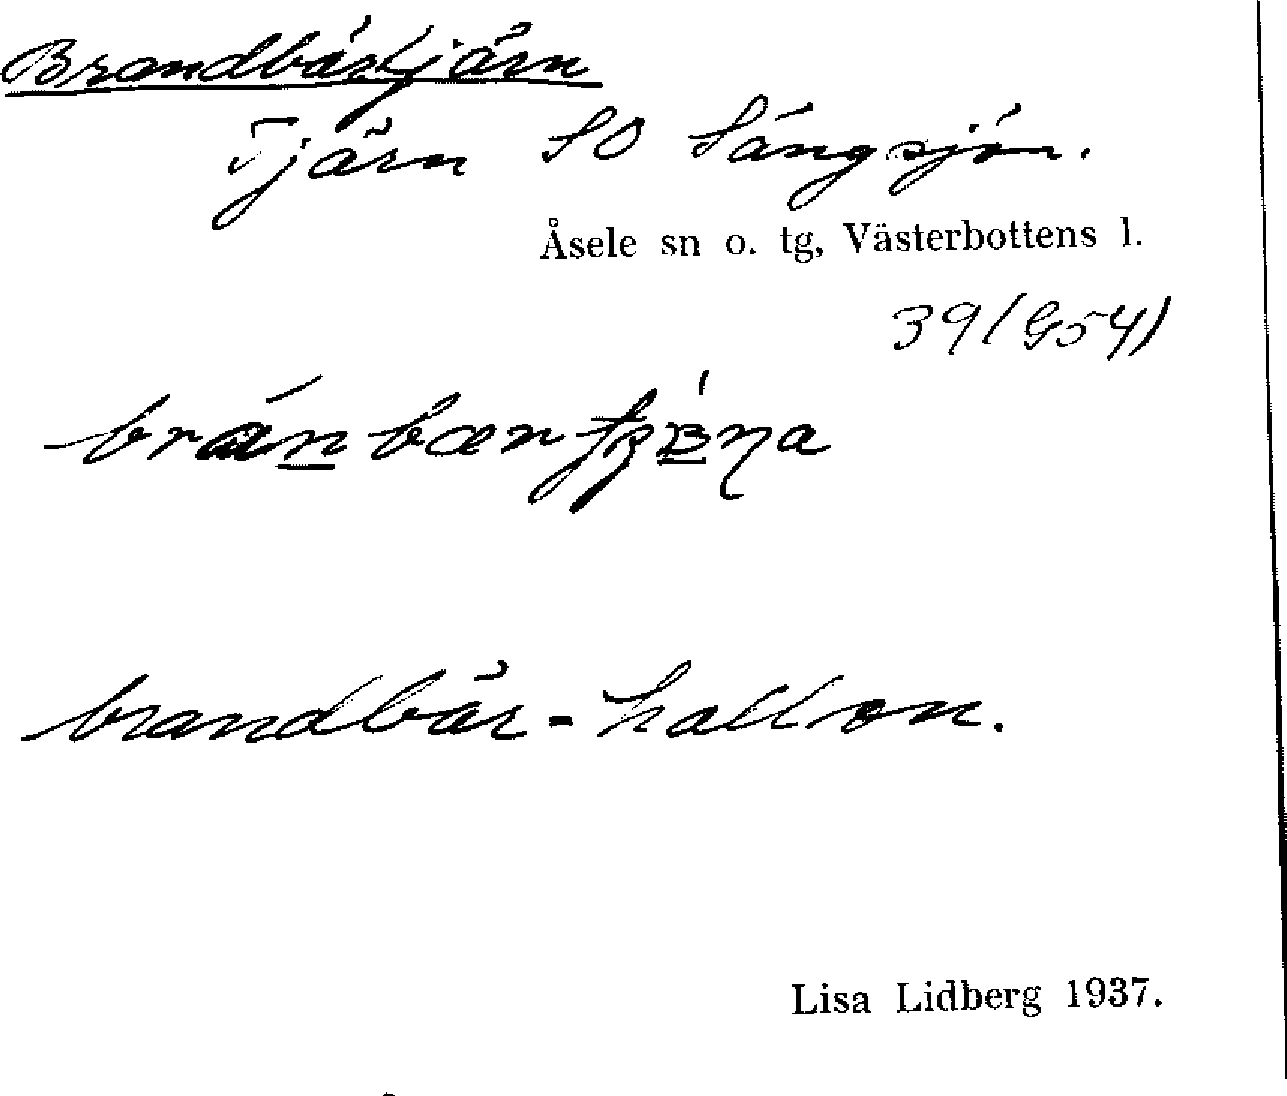 Brandbärtjärn
Tjärn SO Långsjön.
Åsele sn o. tg, Västerbottens l.
39 (G54)
brandbär - hallon.
Lisa Lidberg 1937.